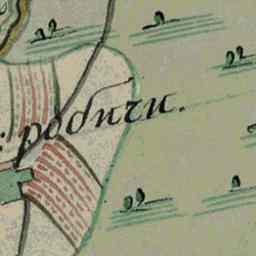 : робичи.